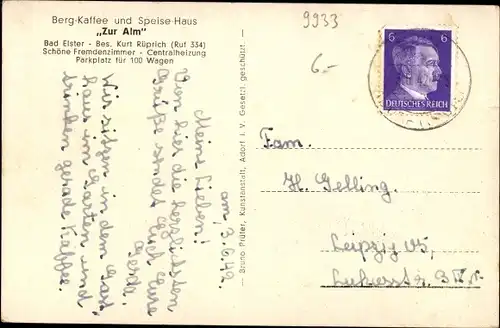 Berg-Kaffee und Speise-Haus
„Zur Alm"
Bad Elster - Bes. Kurt Rüprich (Ruf 334)
Schöne Fremdenzimmer - Centralheizung
Parkplatz für 100 Wagen
am, 3.6.42.
Meine Lieben!
Von hier die herzlichsten
Grüße sendet Euch Eure
Gerda.
Wir sitzen in dem Gast-
haus im Garten und
trinken gerade Kaffee.
Bruno Prüfer, Kunstanstalt, Adorf i. V. Gesetzl. geschützt.
9933
6.-
6 6
DEUTSCHES REICH
Fam.
H. Gelling.
Leipzig W5,